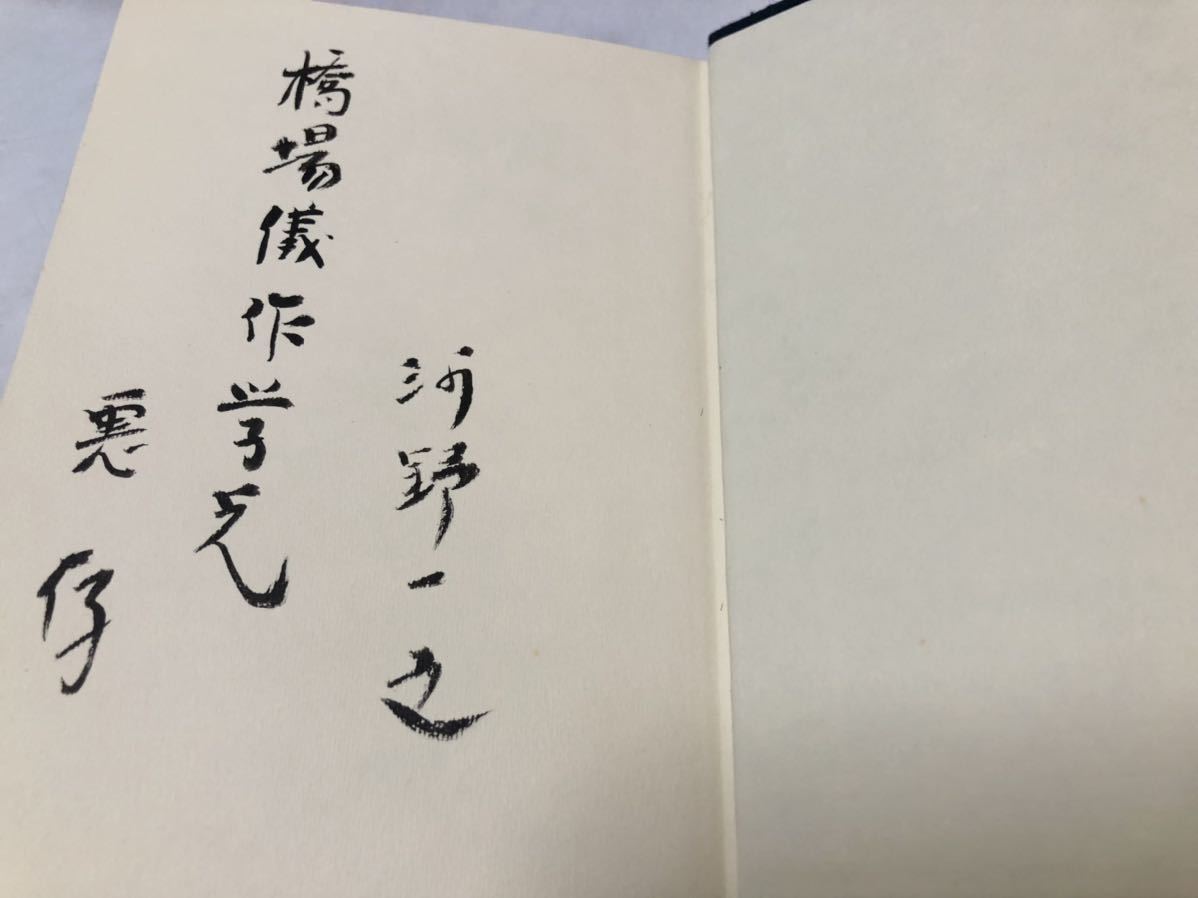 河野一之
橋場儀作学兄
恵存